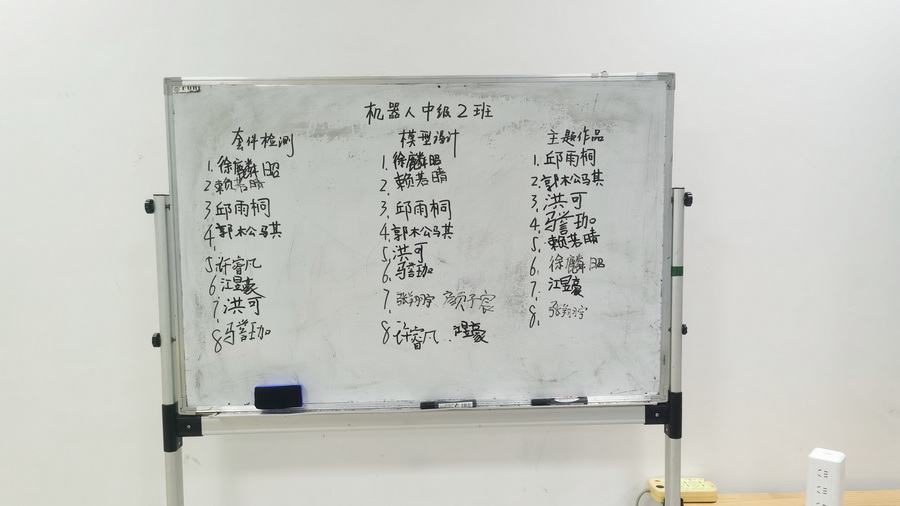 机器人中级2班
套件检测
1.徐麟昭
2.赖若晴
3.邱雨桐
4.郭松骐
5.许睿凡
6.江昱豪
7.洪可
8.马誉珈
模型设计
1.徐麟昭
2.赖若晴
3.邱雨桐
4.郭松骐
5.洪可
6.马誉珈
7.张翔宇 颜子宸
8.许睿凡、江昱豪
主题作品
1.邱雨桐
2.郭松骐
3.洪可
4.马誉珈
5.赖若晴
6.徐麟昭
7.江昱豪
8.张翔宇